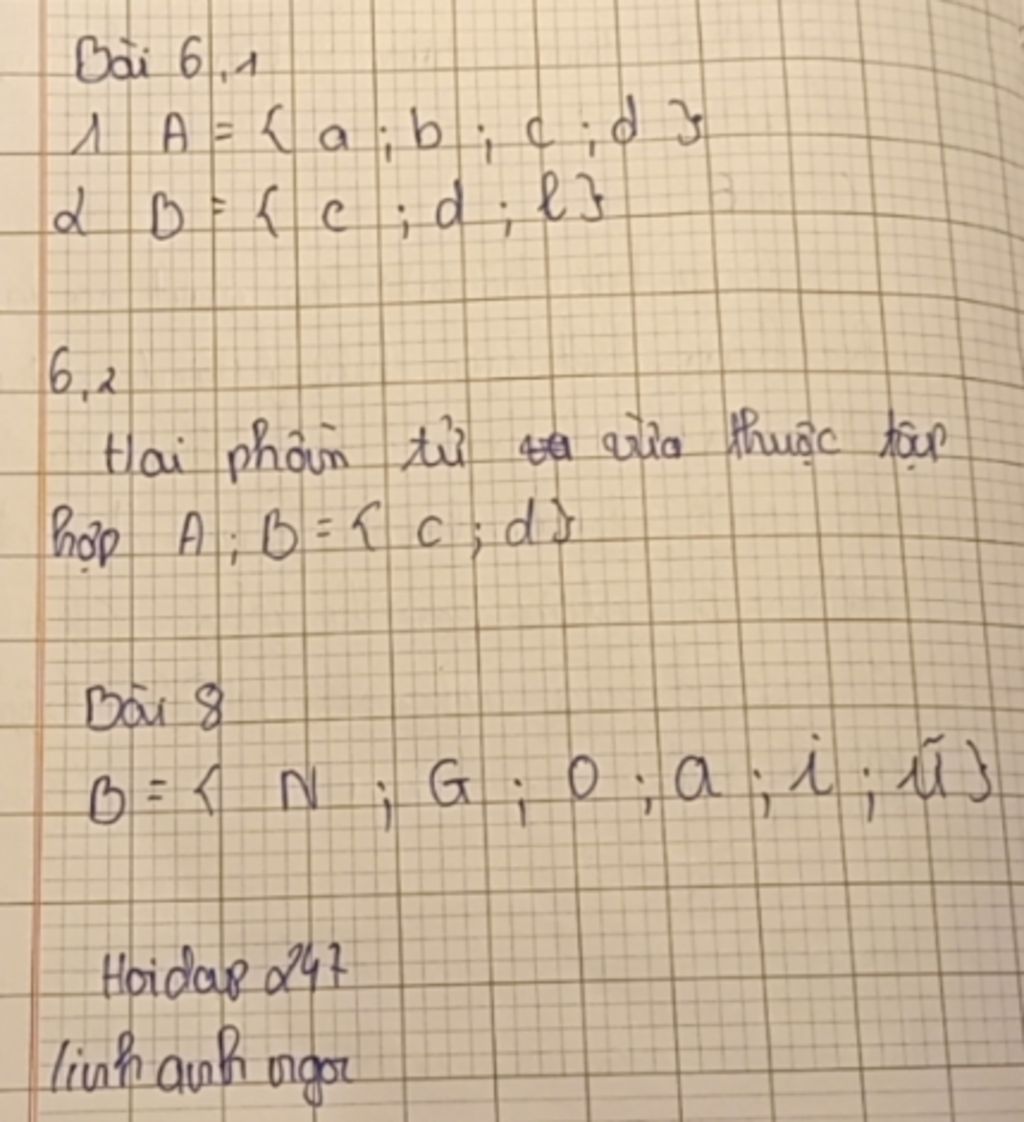 Bài 6.1
1 A = { a ; b ; c ; d }
2 B = { c ; d ; l }
6.2
Hai phần tử vừa thuộc tập
hợp A ; B = { c ; d }
Bài 8
B = { N ; G ; O ; a ; i ; ũ }
Hoidap 247
linh anh ngoc